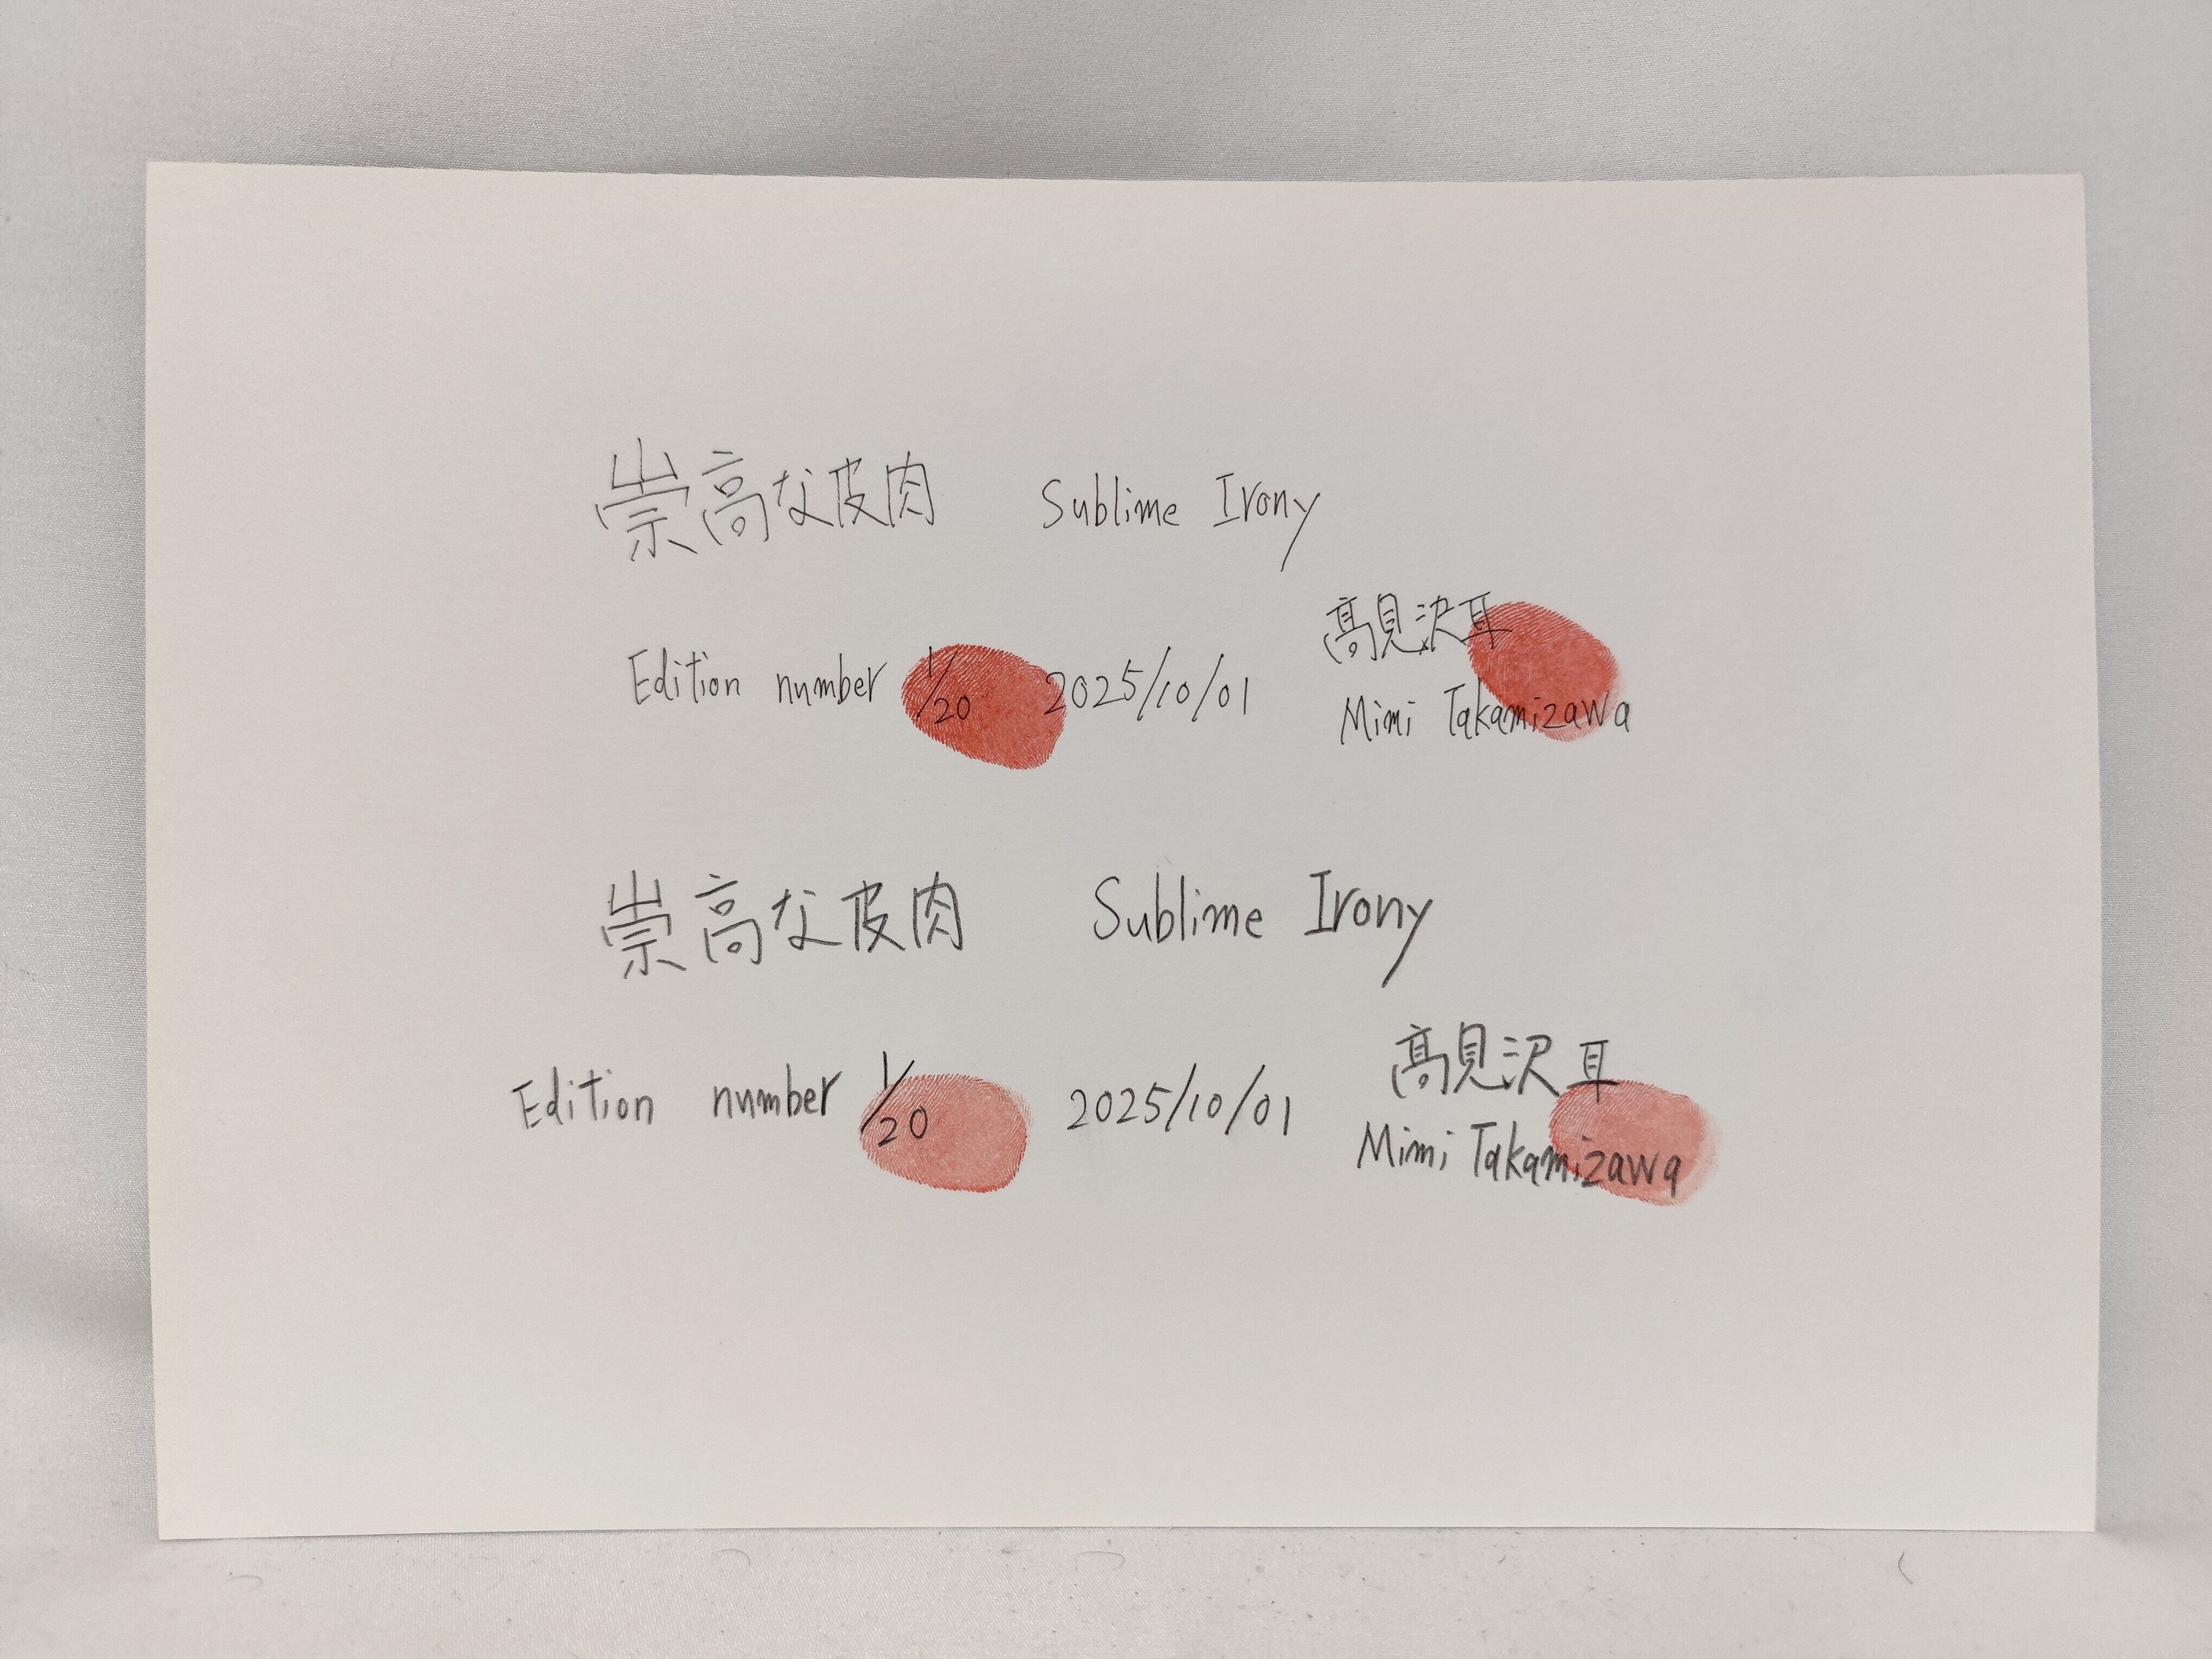 崇高な皮肉 Sublime Irony
高見沢耳
Edition number 1/20 2025/10/01
Mimi Takamizawa
崇高な皮肉 Sublime Irony
高見沢耳
Edition number 1/20 2025/10/01
Mimi Takamizawa